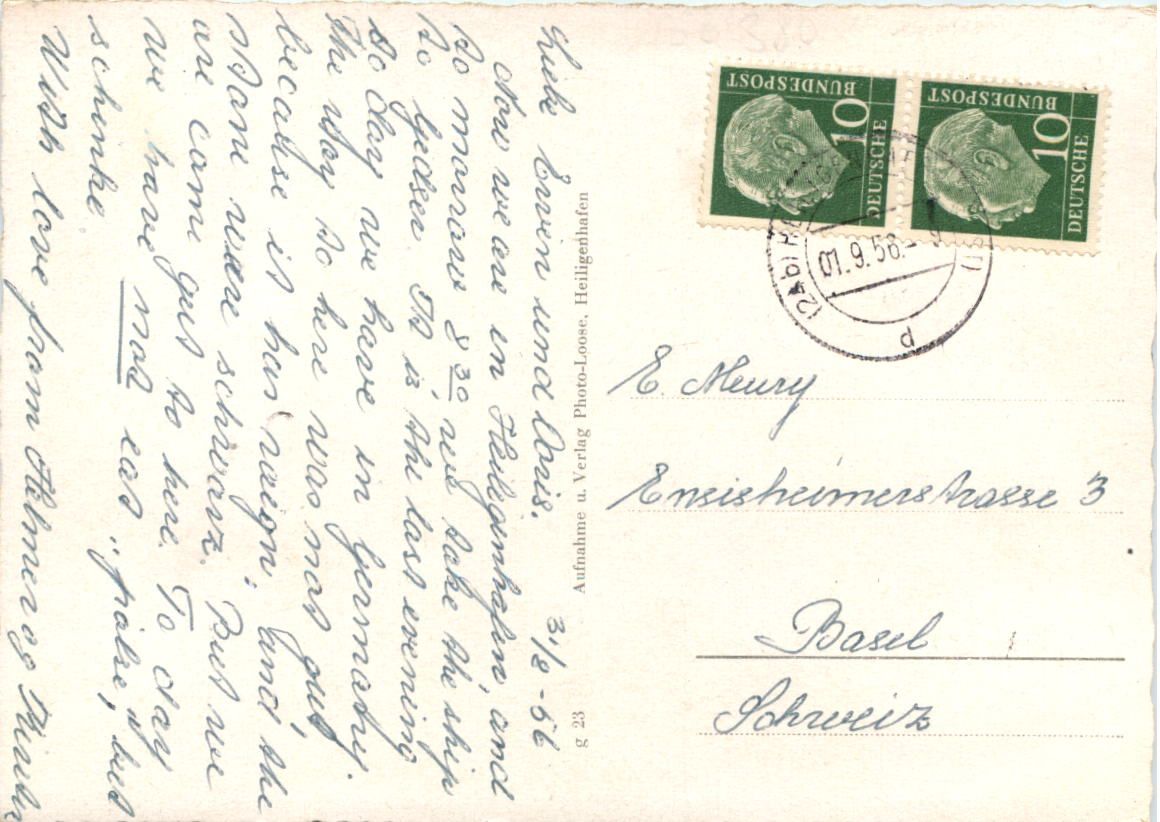 31/8-56
Liebe Erwin und Doris.
Now we are in Heiligenhafen, and
to morrow 8 30 we take the ship
to Gedser. It is the last evening
to day we have in Germany.
The way to here was not gut
because it has "regn", and the
are came gut to here. To day
we have not eat "pølse", but
schinke
With love from Helmer og
Aufnahme u. Verlag Photo-Loose, Heiligenhafen
g 23
10
DEUTSCHE
BUNDESPOST
10
DEUTSCHE
BUNDESPOST
(24b)
01.9.56.-
p
E. Meury
Ensisheimerstrasse 3
Basel
Schweiz